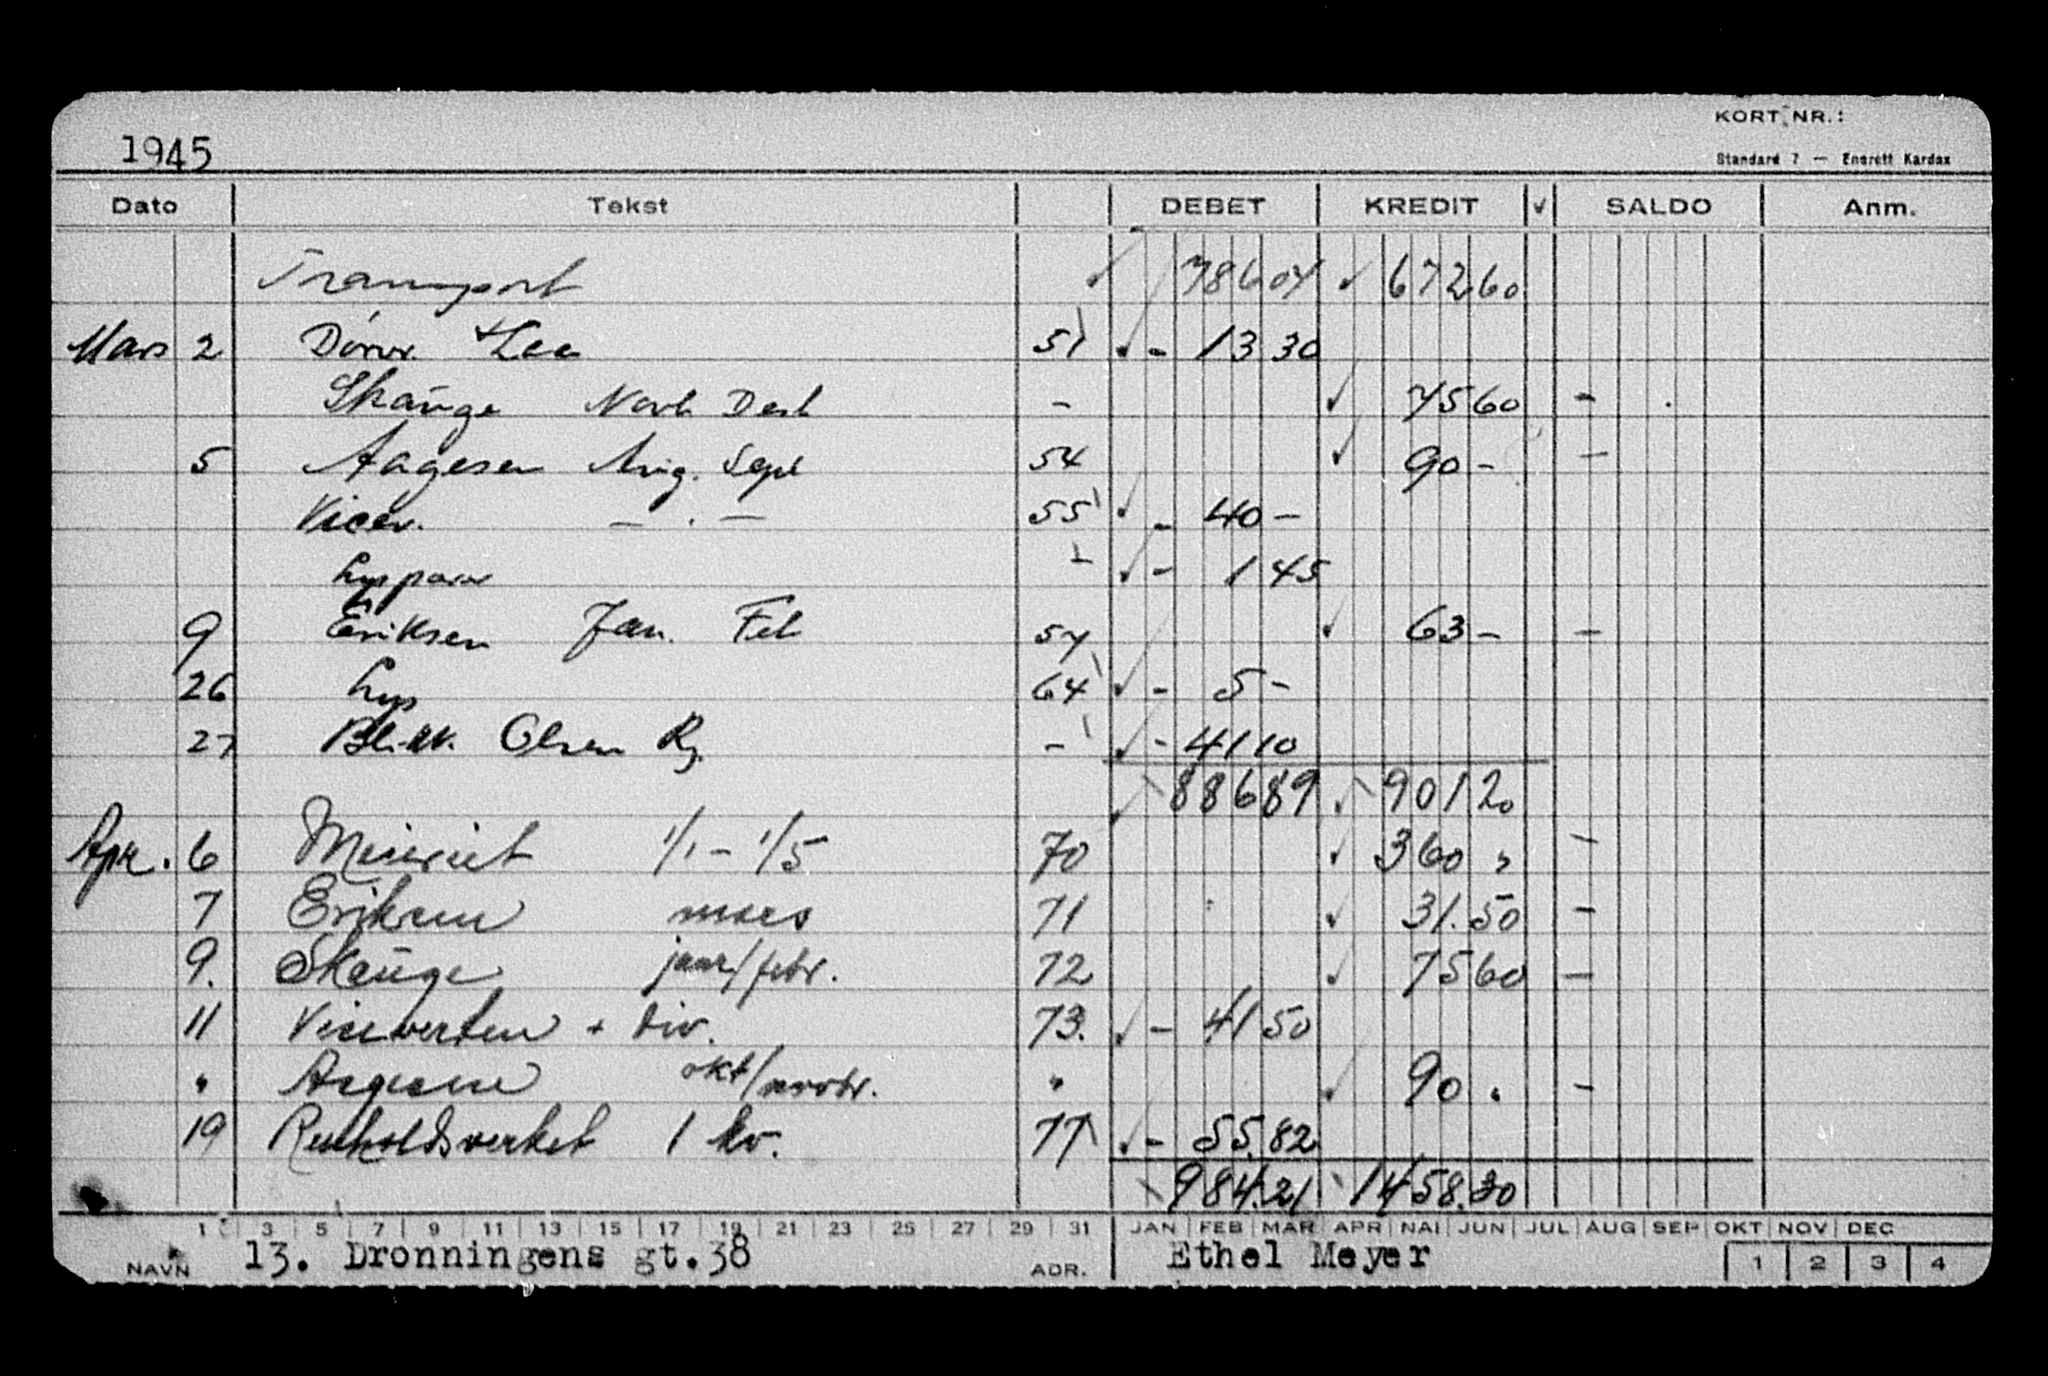 KORT NR.:
1945
Standard 7 — Enerett Kardex
Dato Tekst DEBET KREDIT ✓ SALDO Anm.
Transport ✓ 786 04 ✓ 672 60
Mars 2 51 ✓ - 13 30
Skauge Nov Des - ✓ 75 60 -
5 Aagesen Aug. Sept 54 ✓ 90 - -
Vicev. — . — 55 ✓ - 40 -
Lyspærer - ✓ - 1 45
9 Eriksen Jan. Feb 57 ✓ 63 - -
26 Lys 64 ✓ - 5 -
27 Olsen Rg. - ✓ - 41 10
✓ 886 89 ✓ 901 20
Apr. 6 1/1 - 1/5 70 ✓ 360 " -
7 Eriksen mars 71 ✓ 31.50 -
9. Skauge jan/febr. 72 ✓ 75 60 -
11 Viseverten + div. 73. ✓ - 41 50
" Aagesen okt/novbr. " ✓ 90 . -
19 Renholdsverket 1 kv. 77 ✓ - 55.82
984.21 1458.30
1 3 5 7 9 11 13 15 17 19 21 23 25 27 29 31 JAN FEB MAR APR MAI JUN JUL AUG SEP OKT NOV DEC
NAVN 13. Dronningens gt.38 ADR. Ethel Meyer 1 2 3 4